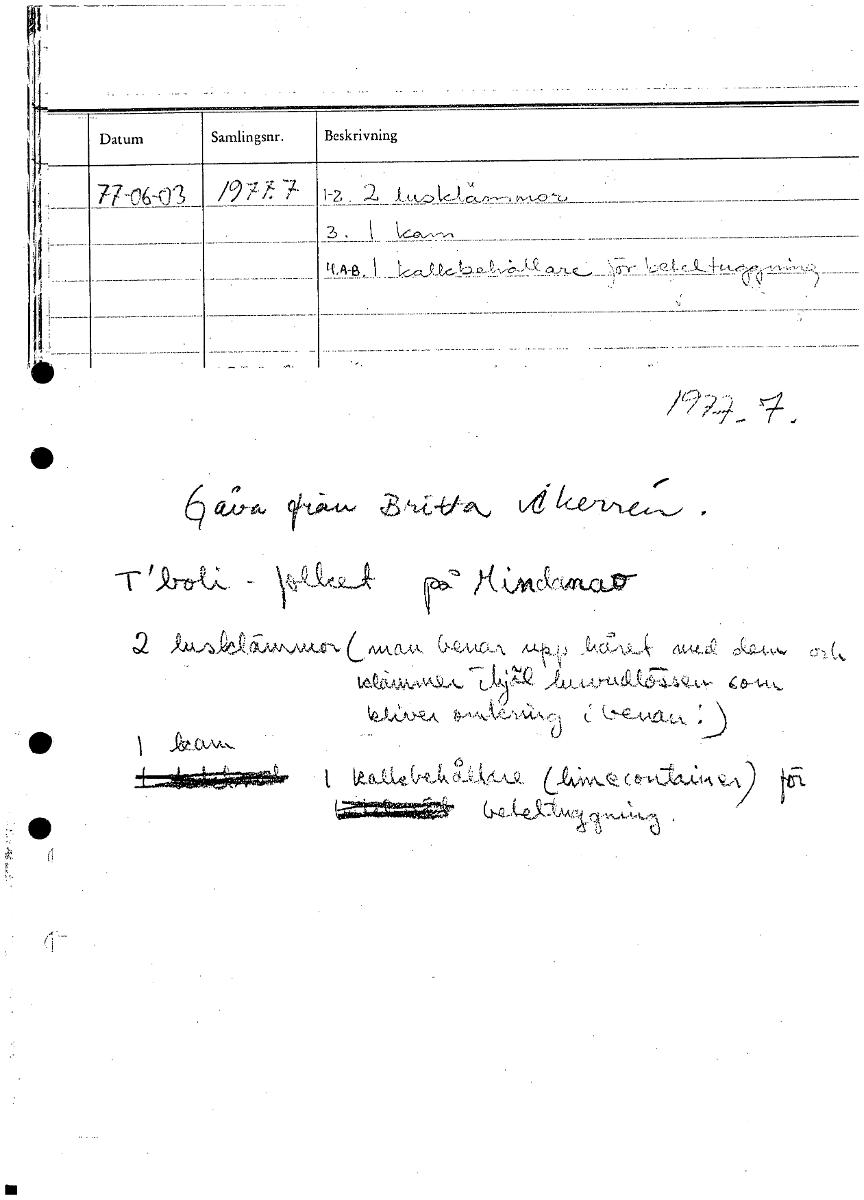 Datum Samlingsnr. Beskrivning
77-06-03 1977.7 1-2. 2 lusklämmor
3. 1 kam
4.A-B. 1 kalkbehållare för beteltuggning
1977.7.
Gåva från Britta Åkerrén.
T'boli-folket på Mindanao
2 lusklämmor (man benar upp håret med dem och
klämmer ihjäl huvudlössen som
kliver omkring i benan!)
1 kam
1 kalkbehållare (limecontainer) för
beteltuggning.